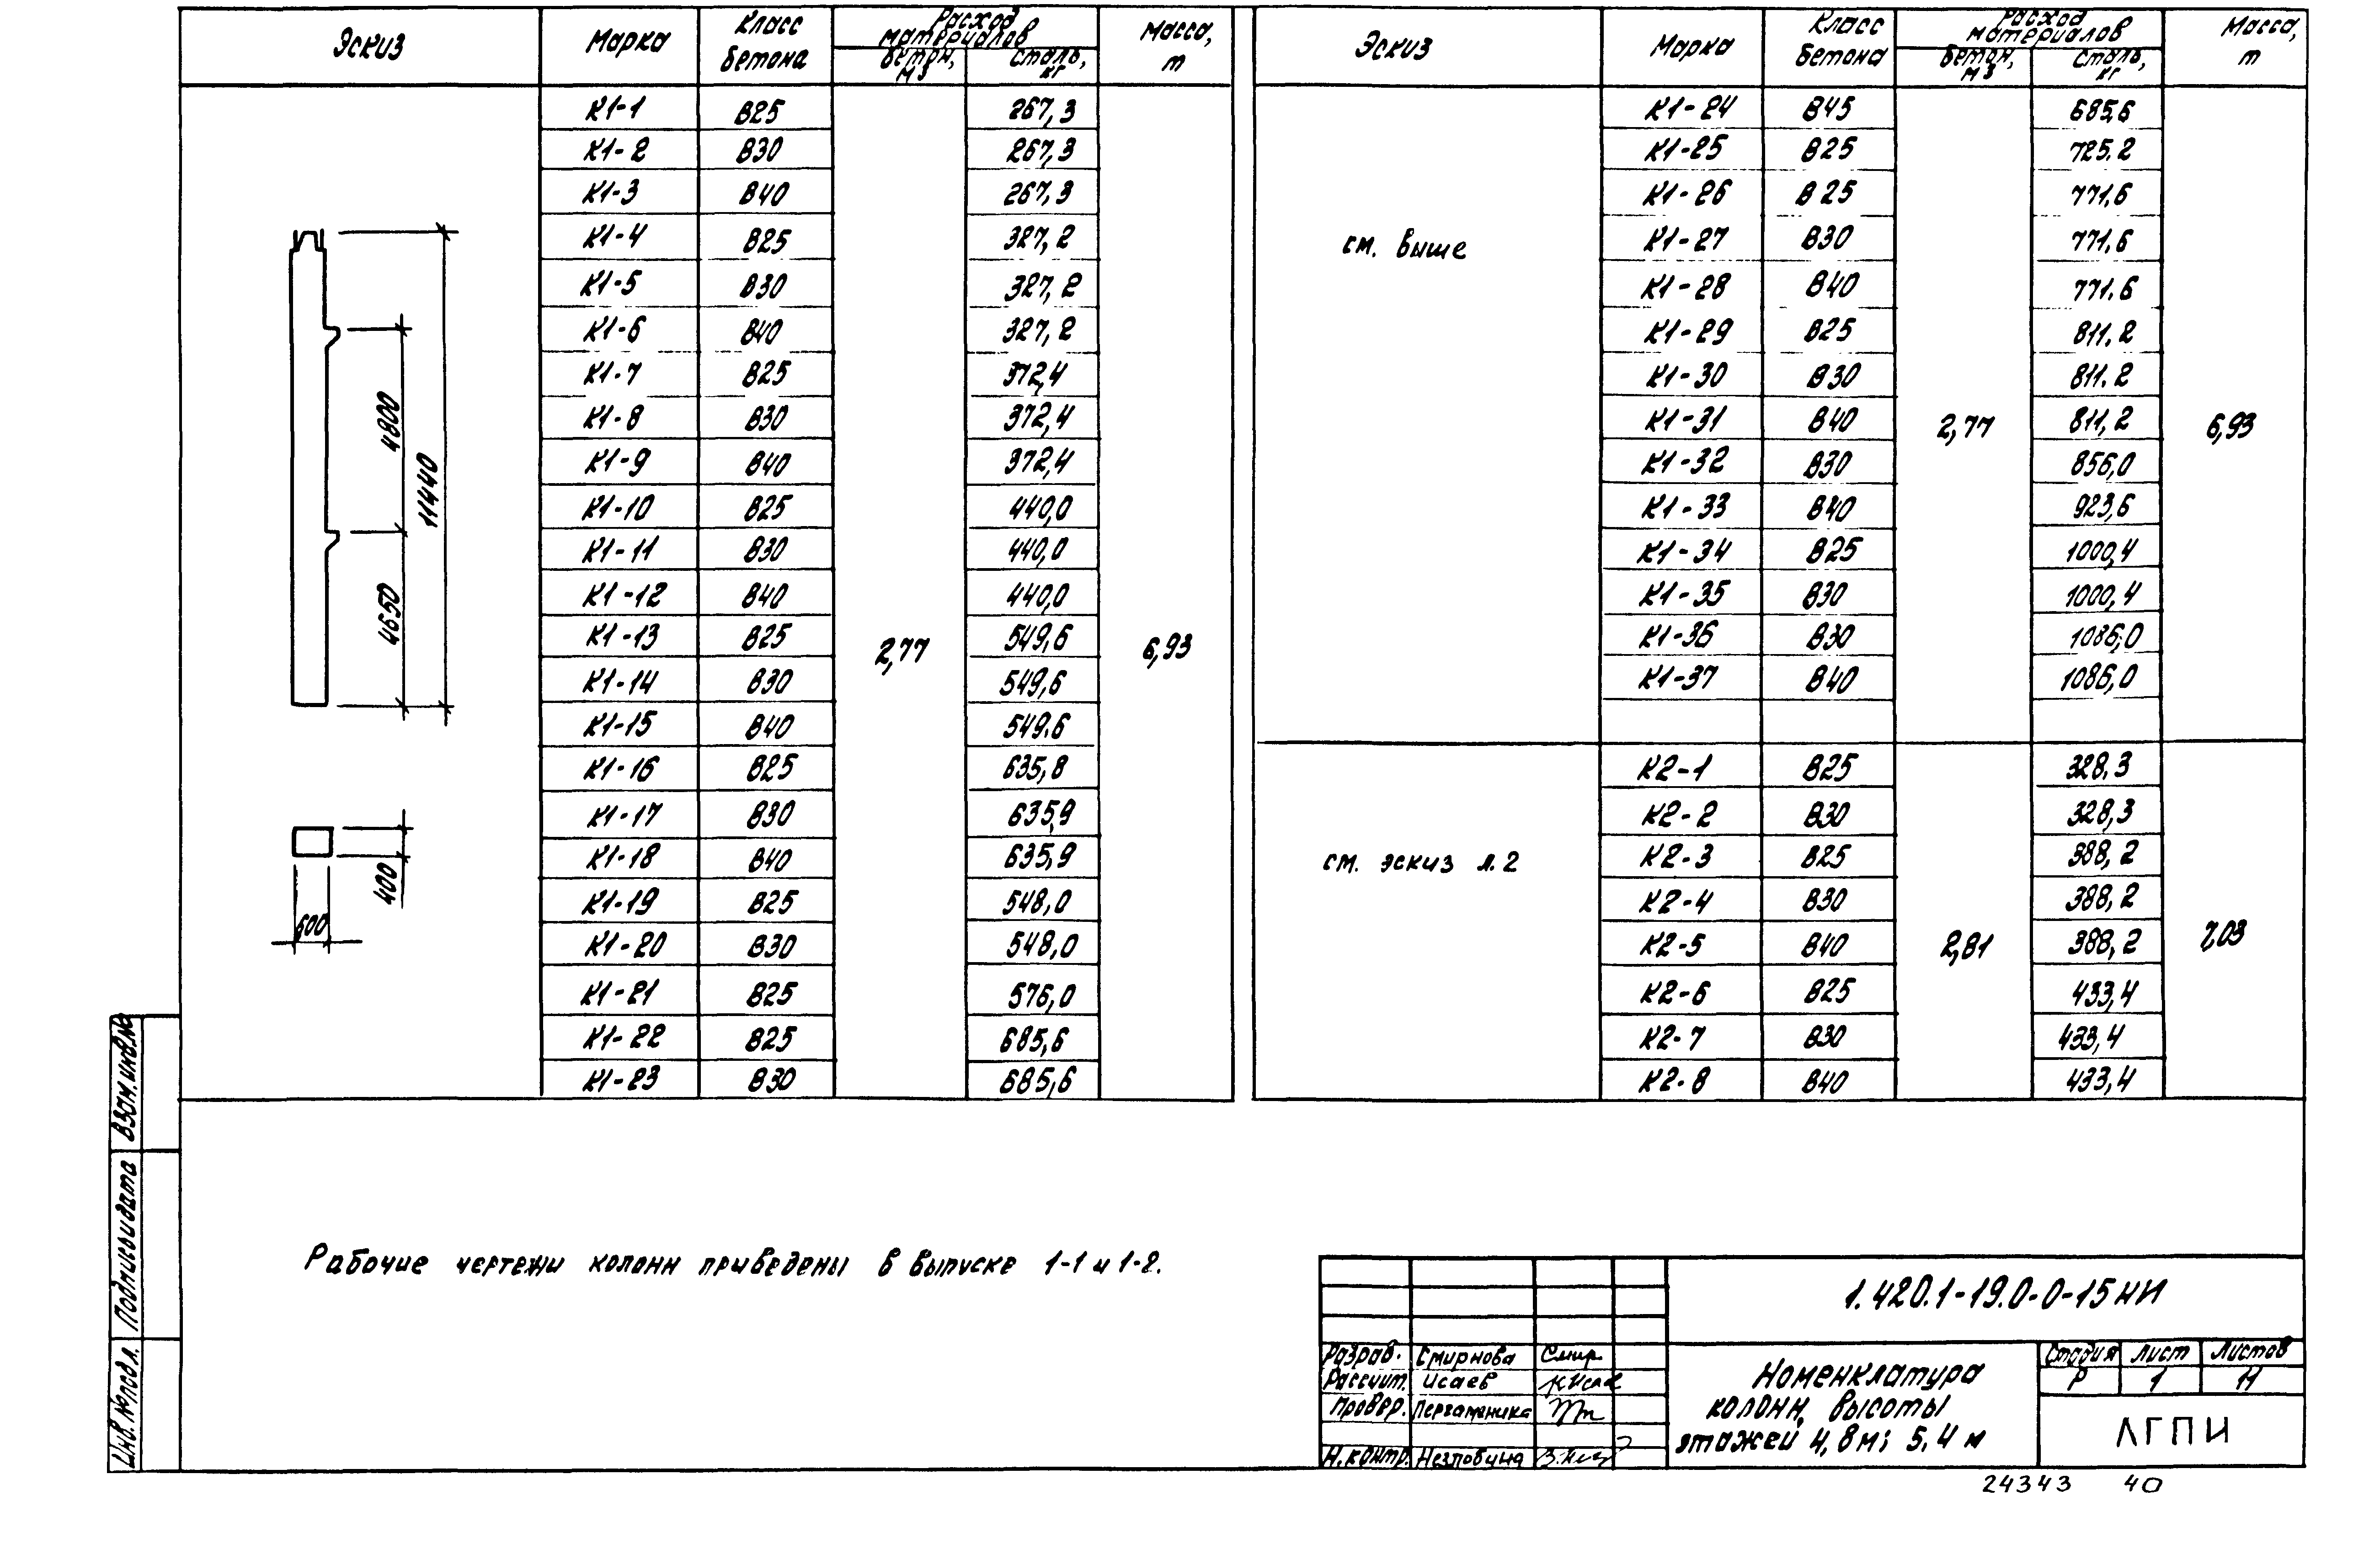 Эскиз Марка Класс бетона Расход материалов бетон, м3 сталь, кг Масса, т
К1-1 В25 267,3
К1-2 В30 267,3
К1-3 В40 267,3
К1-4 В25 327,2
К1-5 В30 327,2
К1-6 В40 327,2
К1-7 В25 372,4
К1-8 В30 372,4
К1-9 В40 372,4
К1-10 В25 440,0
К1-11 В30 440,0
К1-12 В40 440,0
К1-13 В25 549,6
2,77 6,93
К1-14 В30 549,6
К1-15 В40 549,6
К1-16 В25 635,8
К1-17 В30 635,9
К1-18 В40 635,9
К1-19 В25 548,0
К1-20 В30 548,0
К1-21 В25 576,0
К1-22 В25 685,6
К1-23 В30 685,6
4800
11440
4650
400
600
Эскиз Марка Класс бетона Расход материалов бетон, м3 сталь, кг Масса, т
К1-24 В45 685,6
К1-25 В25 725,2
К1-26 В25 771,6
см. выше К1-27 В30 771,6
К1-28 В40 771,6
К1-29 В25 811,2
К1-30 В30 811,2
К1-31 В40 2,77 811,2 6,93
К1-32 В30 856,0
К1-33 В40 923,6
К1-34 В25 1000,4
К1-35 В30 1000,4
К1-36 В30 1086,0
К1-37 В40 1086,0
К2-1 В25 328,3
К2-2 В30 328,3
см. эскиз л.2 К2-3 В25 388,2
К2-4 В30 388,2
К2-5 В40 2,81 388,2 7,03
К2-6 В25 433,4
К2-7 В30 433,4
К2-8 В40 433,4
Рабочие чертежи колонн приведены в выпуске 1-1 и 1-2.
Взам. инв.№
Подпись и дата
Инв.№ подл.
1.420.1-19.0-0-15НИ
Разраб. Смирнова Смир
Рассчит. Исаев
Провер. Пергаменика
Н.контр. Незловина
Номенклатура
колонн, высоты
этажей 4,8м; 5,4 м
Стадия Лист Листов
Р 1 11
ЛГПИ
24343 40